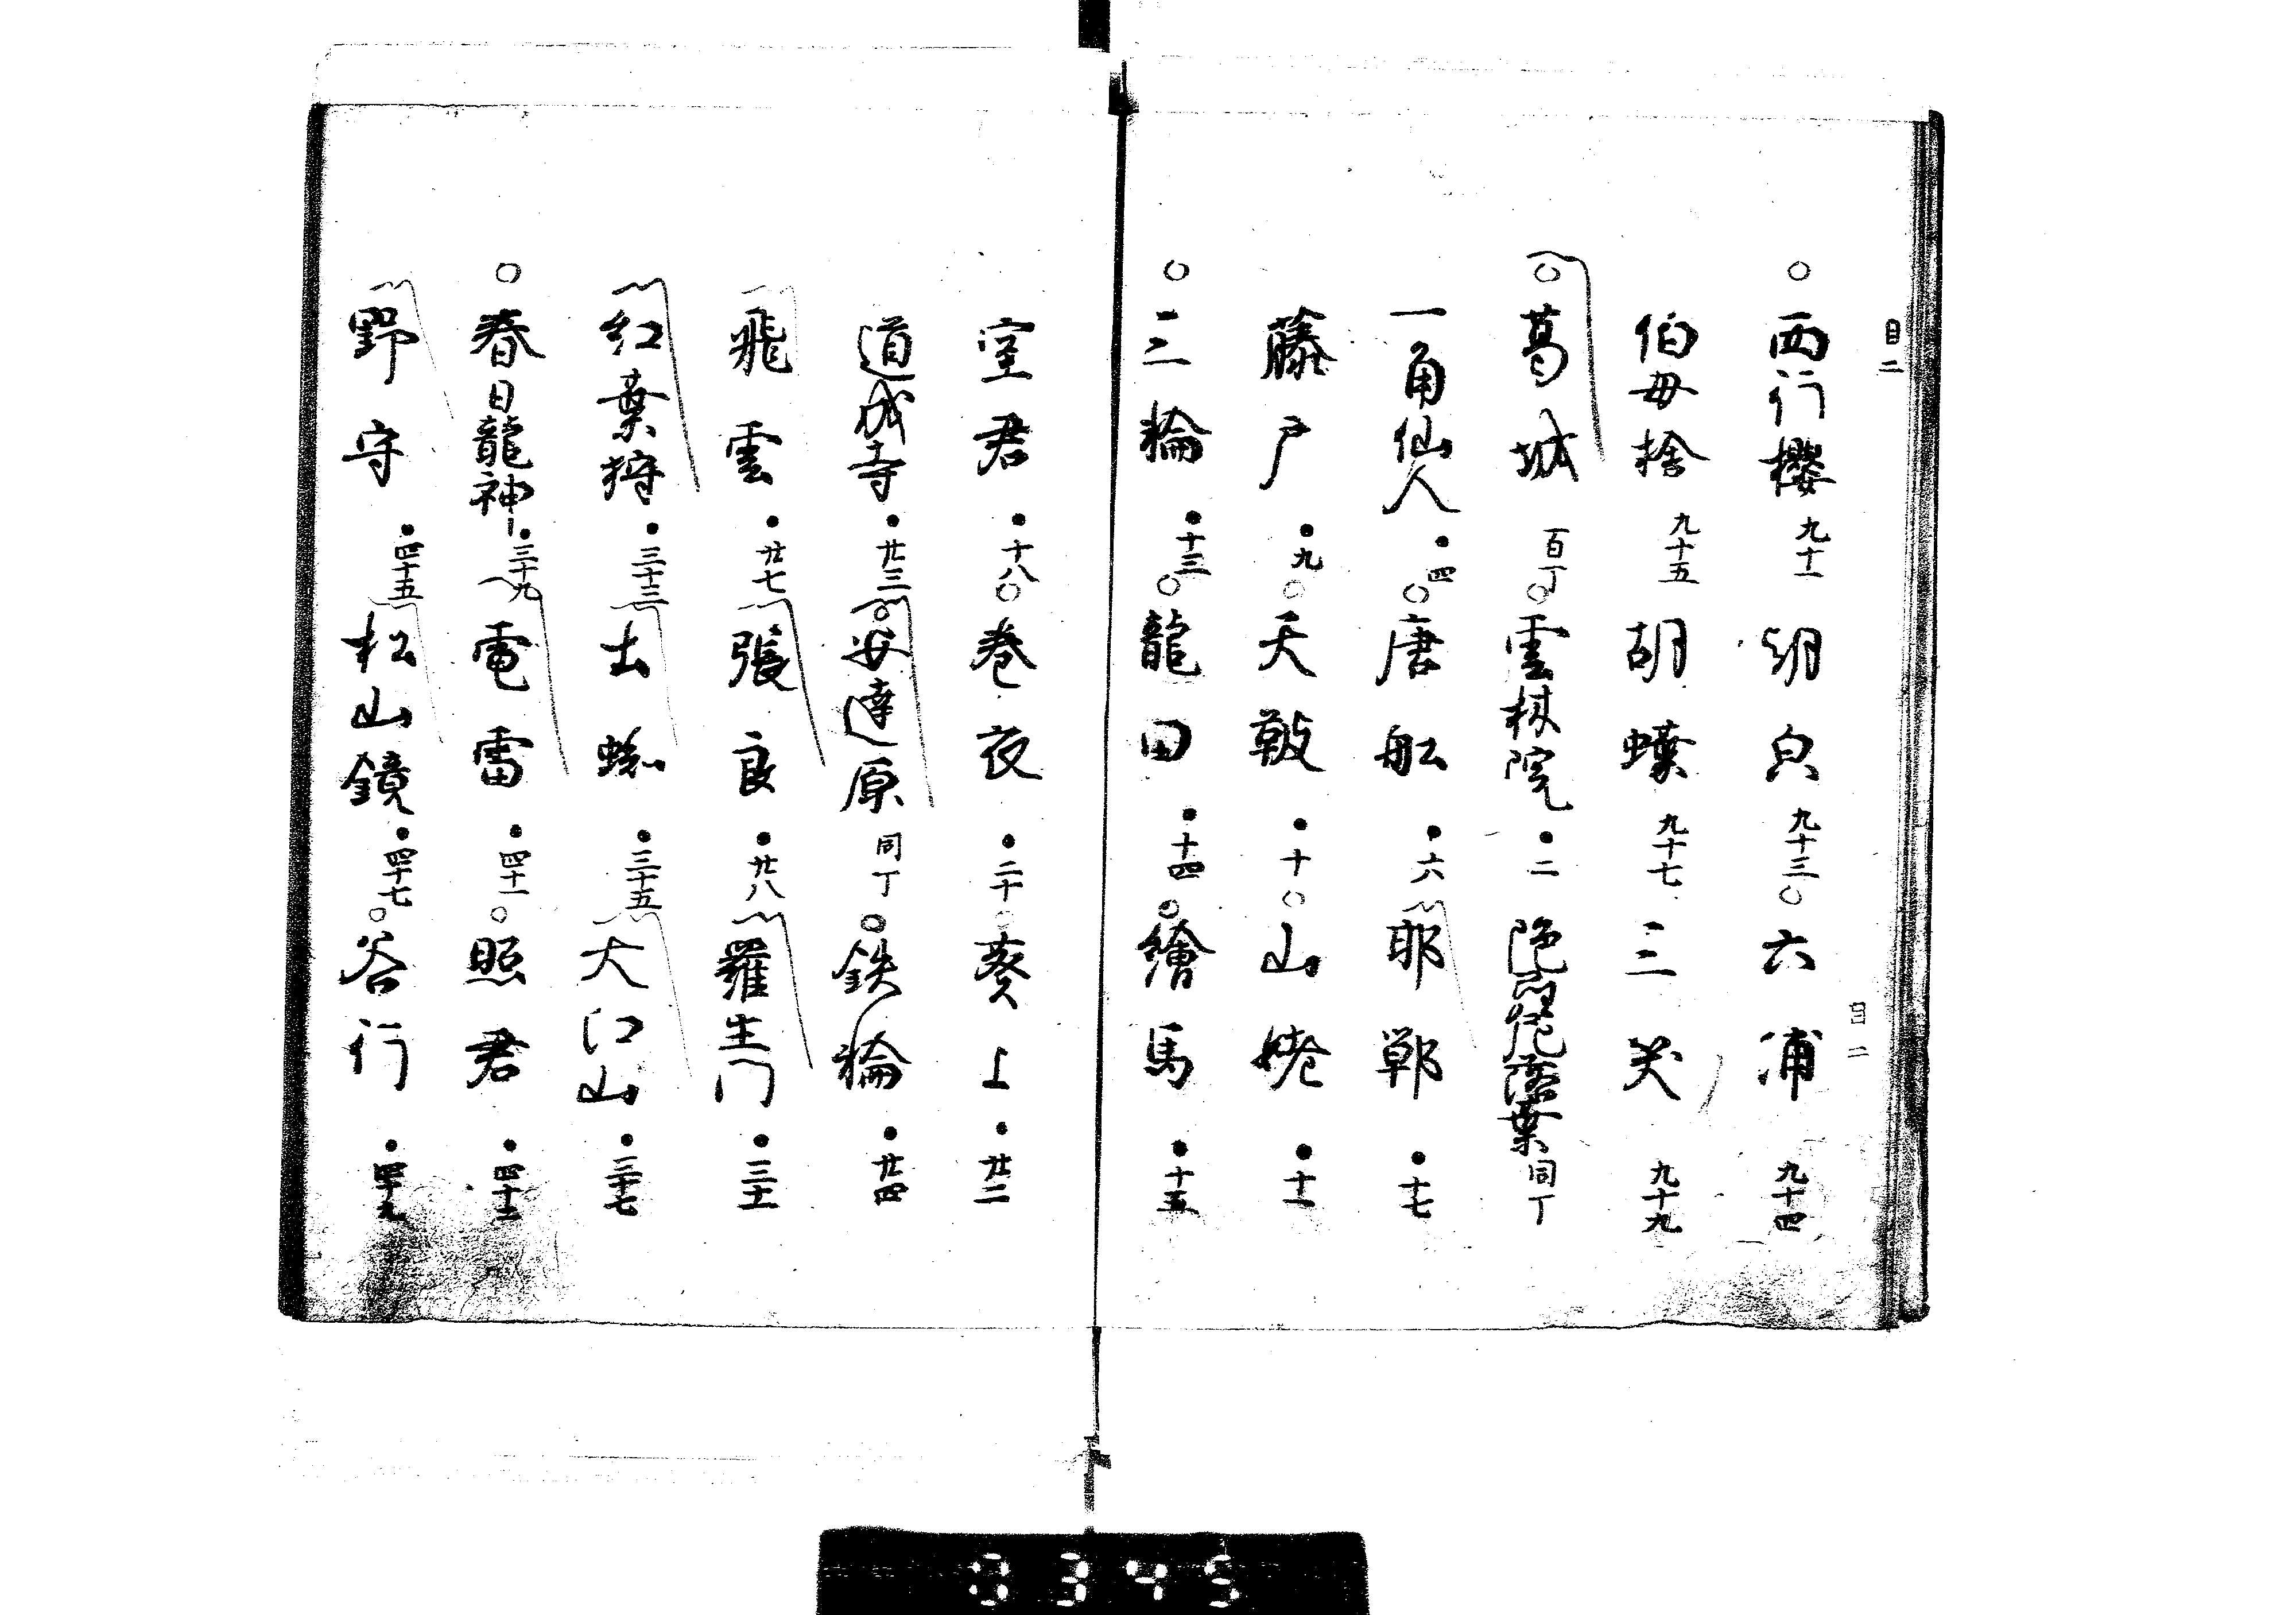 目二
○西行櫻 九十一 朝皃 九十三 ○六浦 九十四
伯母捨 九十五 胡蝶 九十七 三笑 九十九
○葛城 百丁 ○雲林院 •二 陀羅尼落葉 同丁
一角仙人 •四 ○唐舩 •六 邯鄲 •十七
藤戸 •九 ○天皷 •十 ○山姥 •十一
○三輪 •十三 ○龍田 •十四 ○繪馬 •十五
目二
室君 •十八 ○巻夜 •二十 ○葵上 •廿二
道成寺 •廿三 ○安達原 同丁 ○鉄輪 •廿四
飛雲 •廿七 張良 •廿八 羅生門 •三十一
紅葉狩 •三十三 土蜘 •三十五 大江山 •三十七
○春日龍神 •三十九 電雷 •四十一 ○照君 •四十三
野守 •四十五 松山鏡 •四十七 ○谷行 •四十九
8345